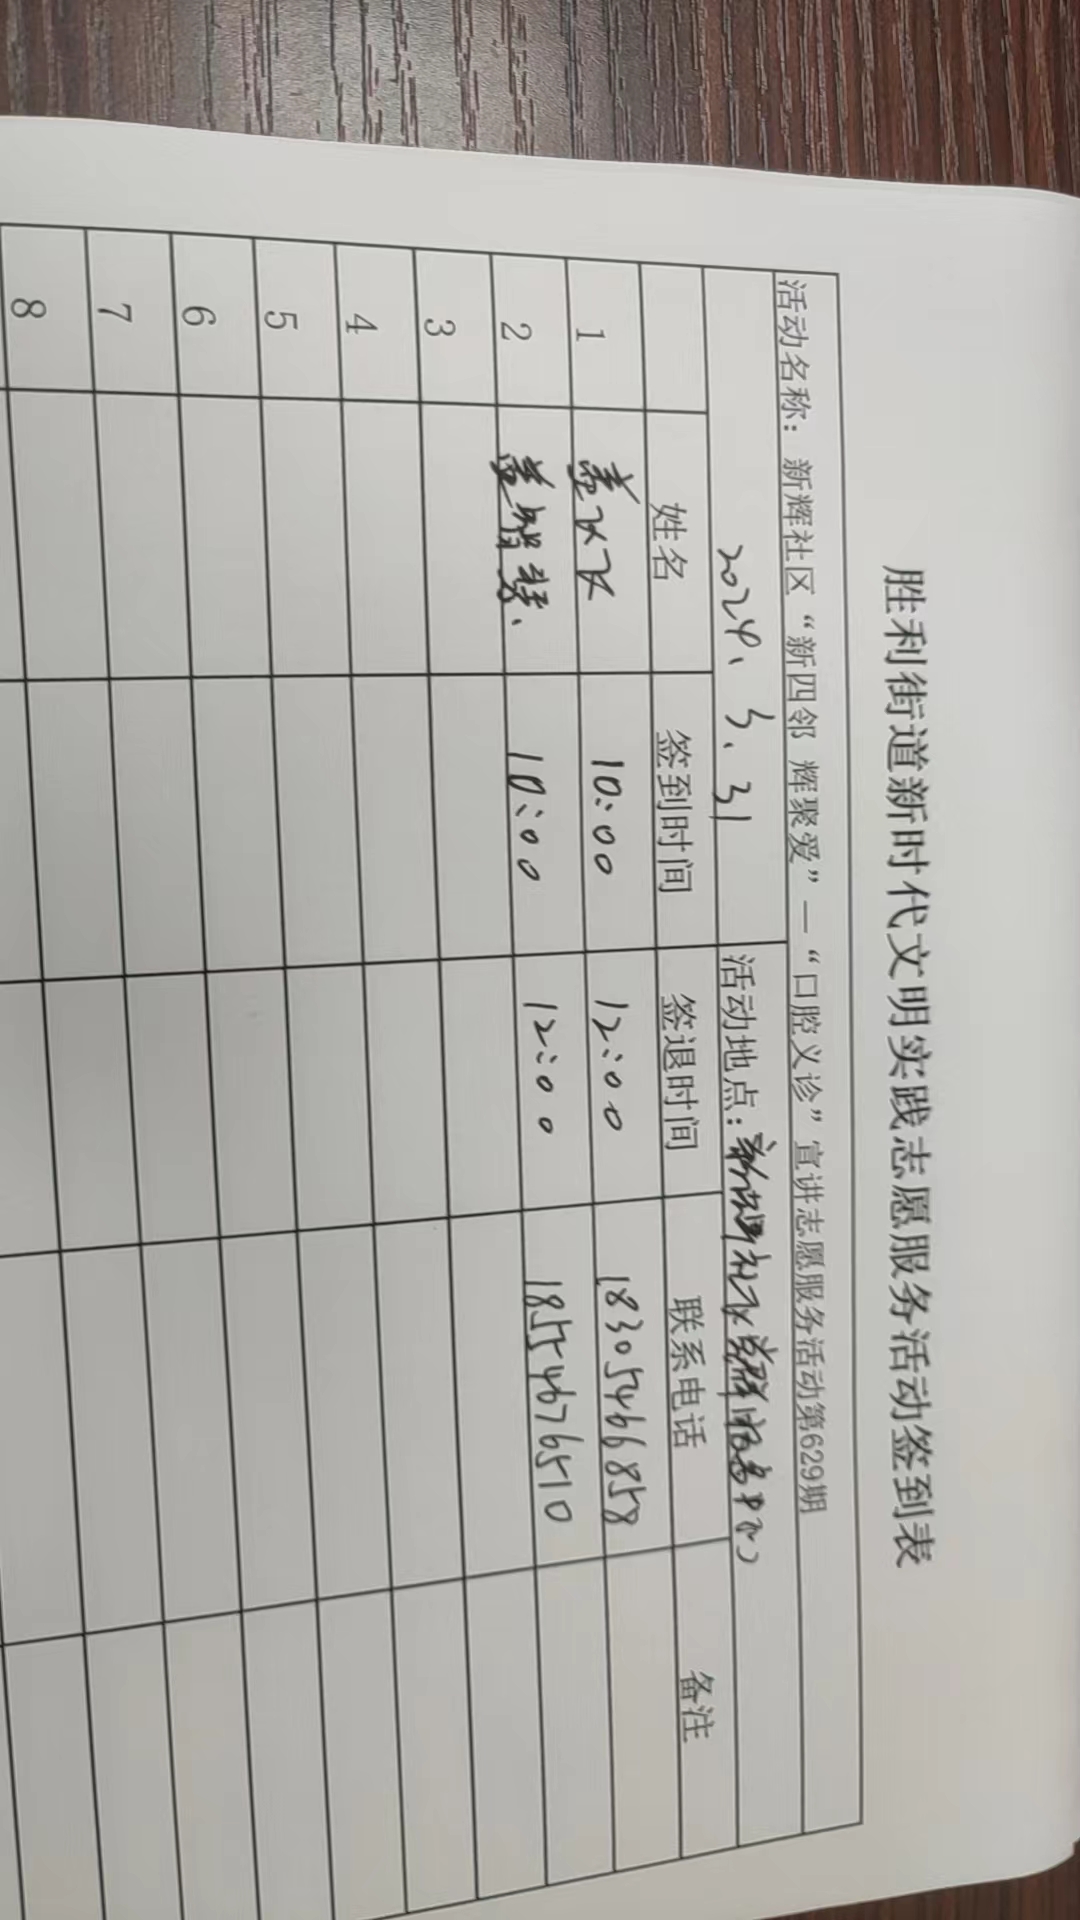 胜利街道新时代文明实践志愿服务活动签到表
活动名称：新辉社区“新四邻 辉聚爱”—“口腔义诊”宣讲志愿服务活动第629期
2024、3、31 活动地点：新辉社区党群服务中心
姓名 签到时间 签退时间 联系电话 备注
1 10:00 12:00 18305466858
2 10:00 12:00 18554676510
3
4
5
6
7
8